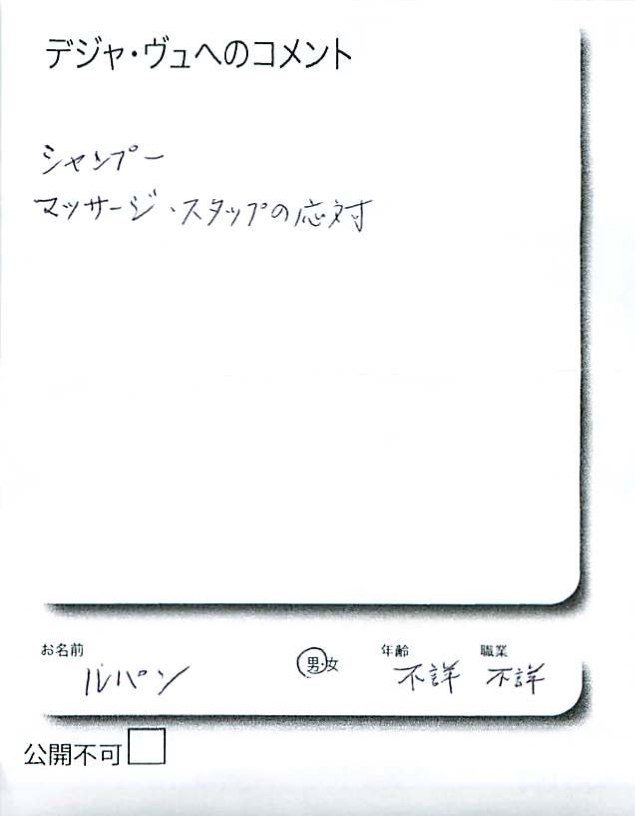 デジャ・ヴュへのコメント
シャンプー
マッサージ、スタップの応対
お名前 男・女 年齢 職業
ルパン 不詳 不詳
公開不可